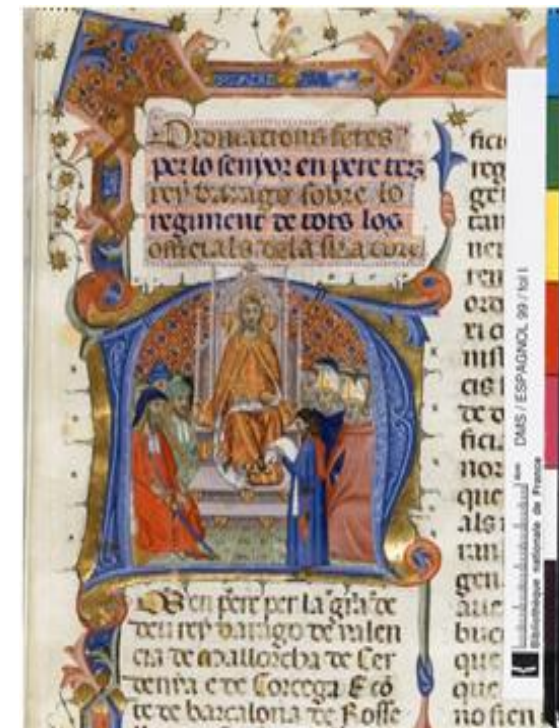 Ordinacions fetes
per lo senyor en pere terz
rey darago sobre lo
regiment de tots los
officials dela sua cort
en pere per la gra de
deu rey darago de valen
cia de Mallorcha de Cer
denya e de Corcega E co
te de barcalona de Rosse
fici
reg
gen
tan
ner
ord
ri
nist
cis
de
fici
nor
que
als
ran
gen
aue
que
que
no sien
DMS / ESPAGNOL 99 / fol I
Bibliothèque nationale de France